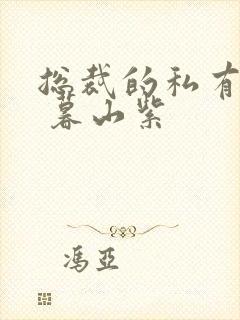 总裁的私有
暮山紫
冯亚